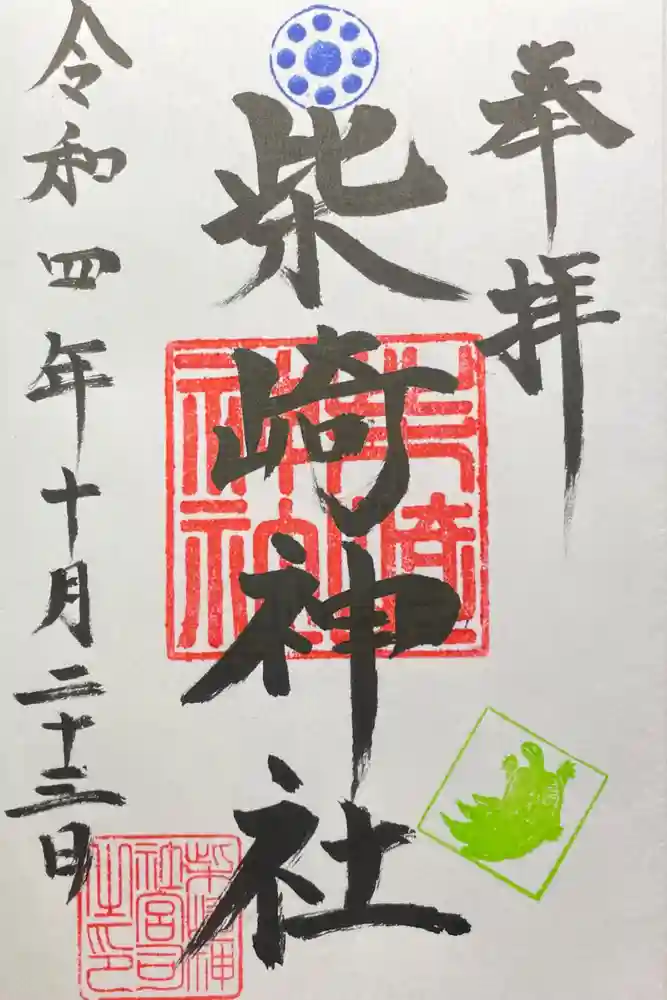 奉拝
柴崎神社
令和四年十月二十三日
柴崎神社
柴崎神社宮司之印